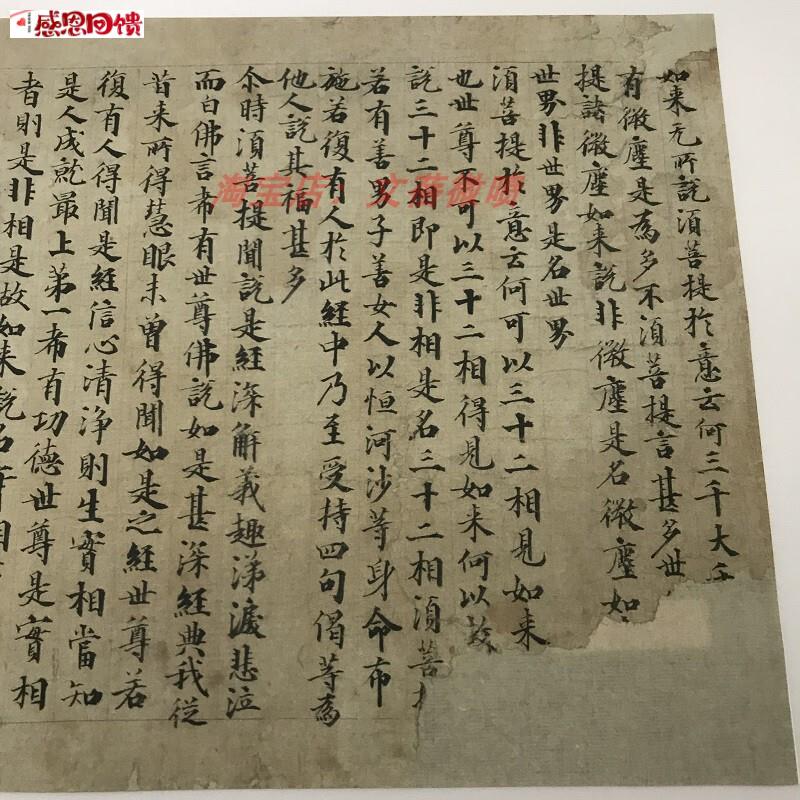 感恩回馈
淘宝店：文
如来无所說須菩提於意云何三千大千
有微塵是為多不須菩提言甚多世
提諸微塵如来說非微塵是名微塵如
世界非世界是名世界
須菩提於意云何可以三十二相見如来
也世尊不可以三十二相得見如来何以故
說三十二相即是非相是名三十二相須菩
若有善男子善女人以恒河沙等身命布
施若復有人於此経中乃至受持四句偈等為
他人說其福甚多
尒時須菩提聞說是経深解義趣涕淚悲泣
而白佛言希有世尊佛說如是甚深経典我従
昔来所得慧眼未曽得聞如是之経世尊若
復有人得聞是経信心清浄則生實相當知
是人成就最上第一希有功徳世尊是實相
者則是非相是故如来說名實相